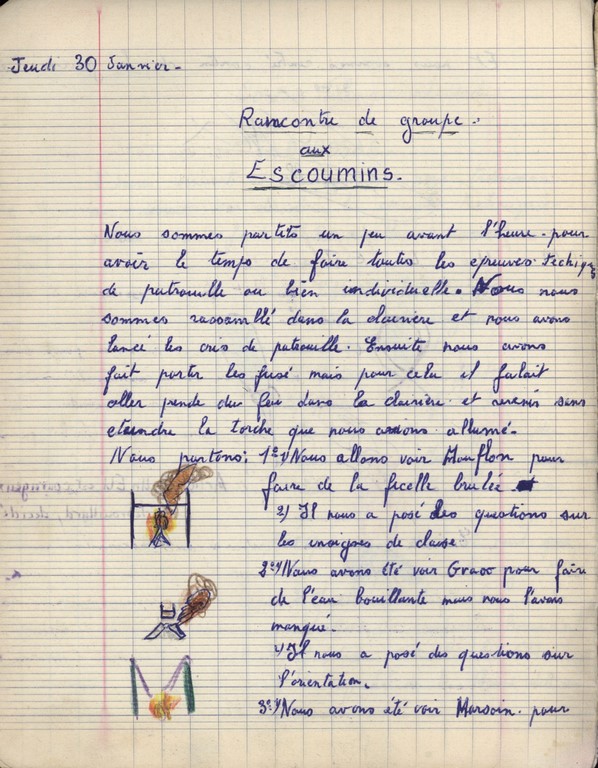 Jeudi 30 Janvier.
Rancontre de groupe.
aux
Escoumins.
Nous sommes partits un peu avant l'heure pour
avoir le temps de faire toutes les epreuves techiqes
de patrouille ou bien individuelle. Nous nous
sommes rassamblé dans la clairière et nous avons
lancé les cris de patrouille. Ensuite nous avons
fait partir les fusé mais pour cela il falait
aller pende du feu dans la clairière et revenir sans
eteindre la torche que nous avons allumé.
Nous partons: 1º) Nous allons voir Mouflon pour
faire de la ficelle brulée.
2) Il nous a posé des questions sur
les insignes de classe
2º) Nous avons été voir pour faire
de l'eau bouillante mais nous l'avons
manqué.
Il nous a posé des questions sur
l'orientation.
3º) Nous avons été voir Marsoin. pour